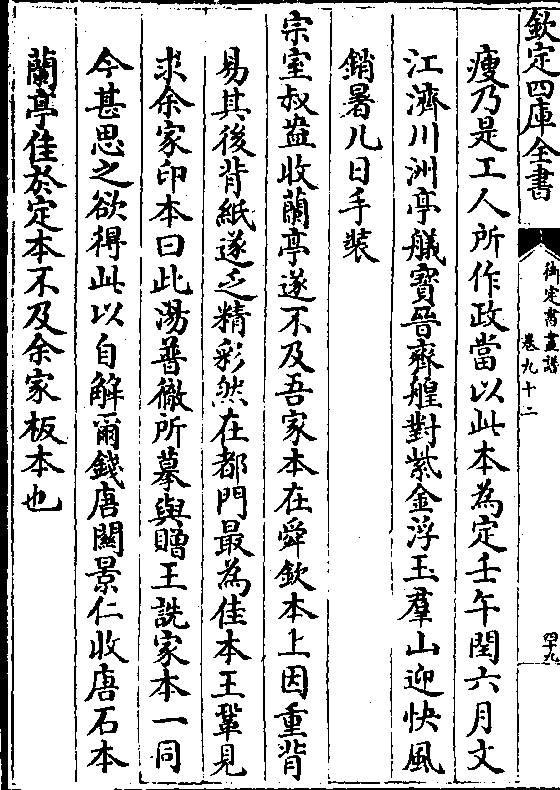 欽定四庫全書
御定書畫譜
卷九十二
四十九
瘦乃是工人所作政當以此本為定壬午閏六月文
江濟川洲亭艤寶晉齋艎對紫金浮玉羣山迎快風
銷暑几日手裝
宗室叔盎收蘭亭遂不及吾家本在舜欽本上因重背
易其後背紙遂乏精彩然在都門最為佳本王鞏見
求余家印本曰此湯普徹所摹與贈王詵家本一同
今甚思之欲得此以自解爾錢唐關景仁收唐石本
蘭亭佳於定本不及余家板本也